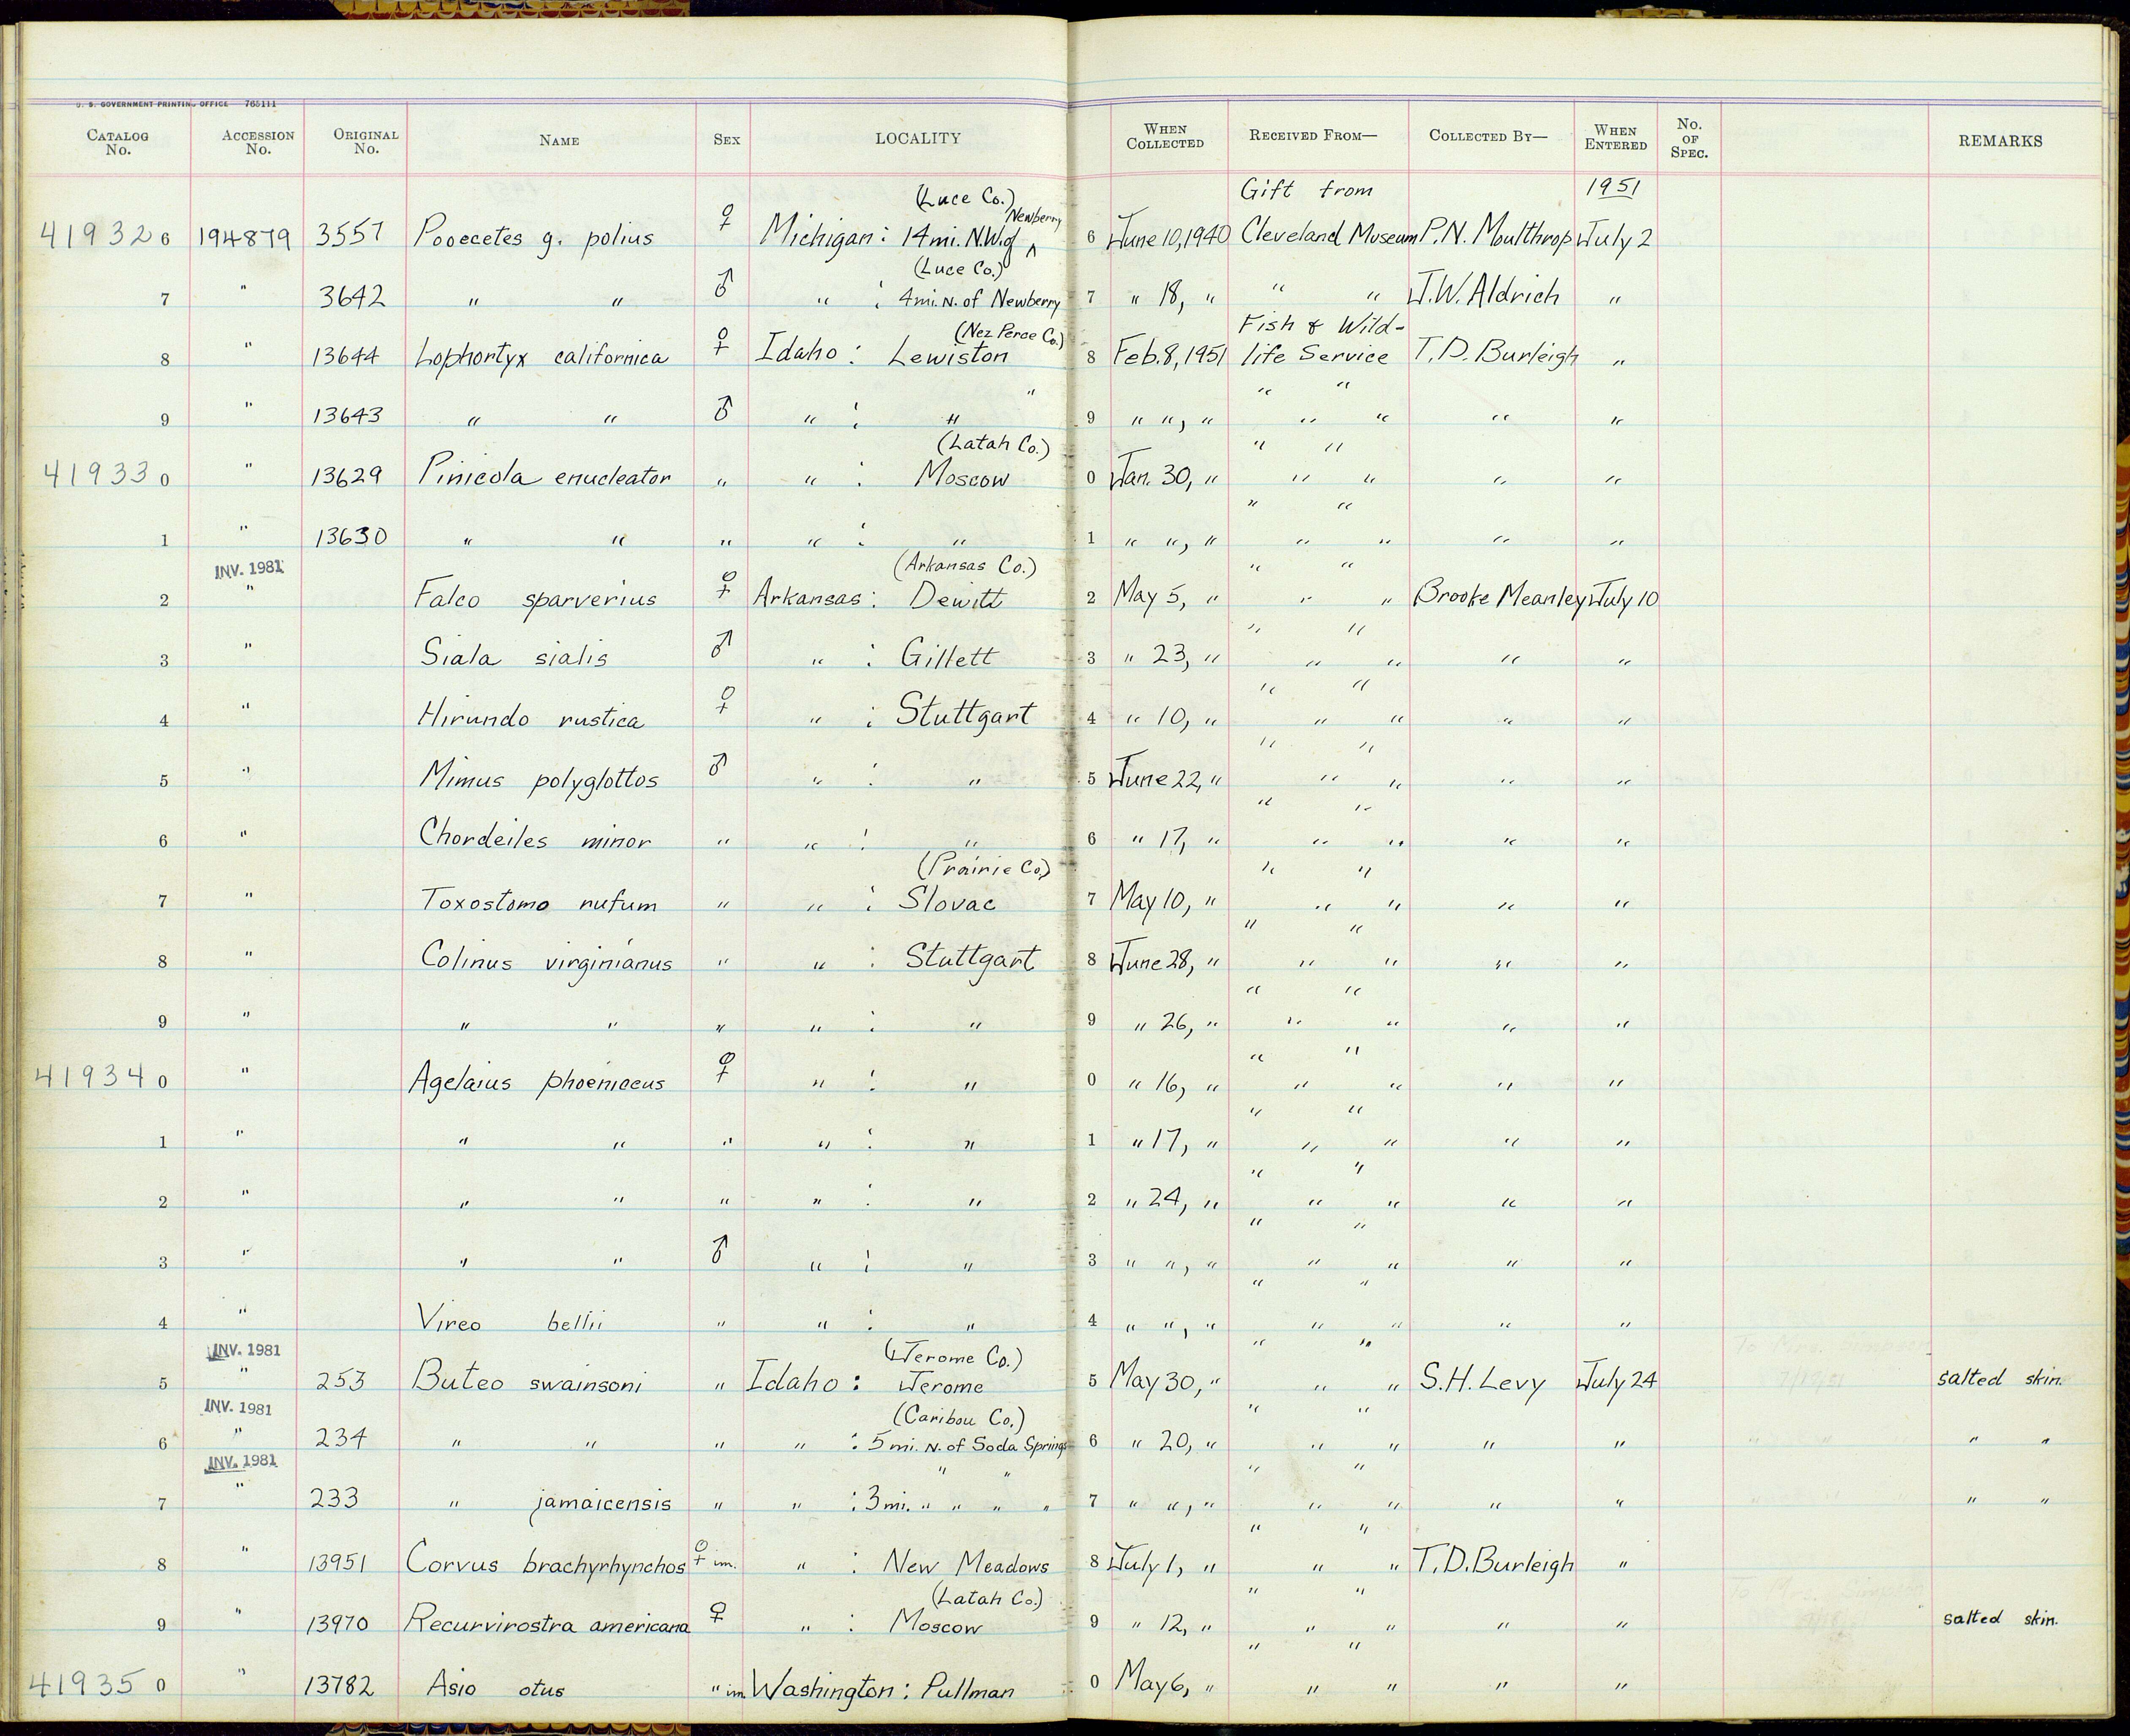 U. S. GOVERNMENT PRINTING OFFICE 765111
CATALOG No. ACCESSION No. ORIGINAL No. NAME SEX LOCALITY WHEN COLLECTED RECEIVED FROM— COLLECTED BY— WHEN ENTERED No. OF SPEC. REMARKS
(Luce Co.) Newberry Gift from 1951
41932 6 194879 3557 Pooecetes g. polius ♀ Michigan: 14 mi. N.W. of ^ 6 June 10, 1940 Cleveland Museum P.N. Moulthrop July 2
(Luce Co.)
7 " 3642 " " ♂ " : 4 mi. N. of Newberry 7 " 18, " " " J.W. Aldrich "
(Nez Perce Co.) Fish & Wild-
8 " 13644 Lophortyx californica ♀ Idaho: Lewiston 8 Feb. 8, 1951 life Service T.D. Burleigh "
" " "
9 " 13643 " " ♂ " : " 9 " ", " " " " "
(Latah Co.) " "
41933 0 " 13629 Pinicola enucleator " " : Moscow 0 Jan. 30, " " " " "
" "
1 " 13630 " " " " : " 1 " ", " " " " "
INV. 1981 (Arkansas Co.) " "
2 " Falco sparverius ♀ Arkansas: Dewitt 2 May 5, " " " Brooke Meanley July 10
" "
3 " Siala sialis ♂ " : Gillett 3 " 23, " " " " "
" "
4 " Hirundo rustica ♀ " : Stuttgart 4 " 10, " " " " "
" "
5 " Mimus polyglottos ♂ " : " 5 June 22, " " " " "
" "
6 " Chordeiles minor " " : " 6 " 17, " " " " "
(Prairie Co.) " "
7 " Toxostoma rufum " " : Slovac 7 May 10, " " " " "
" "
8 " Colinus virginianus " " : Stuttgart 8 June 28, " " " " "
" "
9 " " " " " : " 9 " 26, " " " " "
" "
41934 0 " Agelaius phoeniceus ♀ " : " 0 " 16, " " " " "
" "
1 " " " " " : " 1 " 17, " " " " "
" "
2 " " " " " : " 2 " 24, " " " " "
" "
3 " " " ♂ " : " 3 " ", " " " " "
" "
4 " Vireo bellii " " : " 4 " ", " " " " "
INV. 1981 (Jerome Co.) " "
5 " 253 Buteo swainsoni " Idaho: Jerome 5 May 30, " " " S.H. Levy July 24 salted skin.
INV. 1981 (Caribou Co.) " "
6 " 234 " " " " : 5 mi. N. of Soda Springs 6 " 20, " " " " " " "
INV. 1981 " " " "
7 " 233 " jamaicensis " " : 3 mi. " " " " 7 " ", " " " " " " "
" "
8 " 13951 Corvus brachyrhynchos ♀ im. " : New Meadows 8 July 1, " " " T.D. Burleigh "
(Latah Co.) " "
9 " 13970 Recurvirostra americana ♀ " : Moscow 9 " 12, " " " " " salted skin.
" "
41935 0 " 13782 Asio otus " im. Washington: Pullman 0 May 6, " " " " "